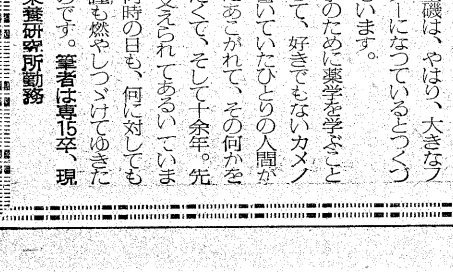 磯は、やはり、大きなフ
ーになつているとつくづ
います。
のために薬学を学ぶこと
て、好きでもないカメノ
いていたひとりの人間が
あこがれて、その何かを
たくて、そして十余年。先
支えられてあるいていま
何時の日も、何に対しても
も燃やしつゞけてゆきた
です。筆者は専15卒、現
栄養研究所勤務